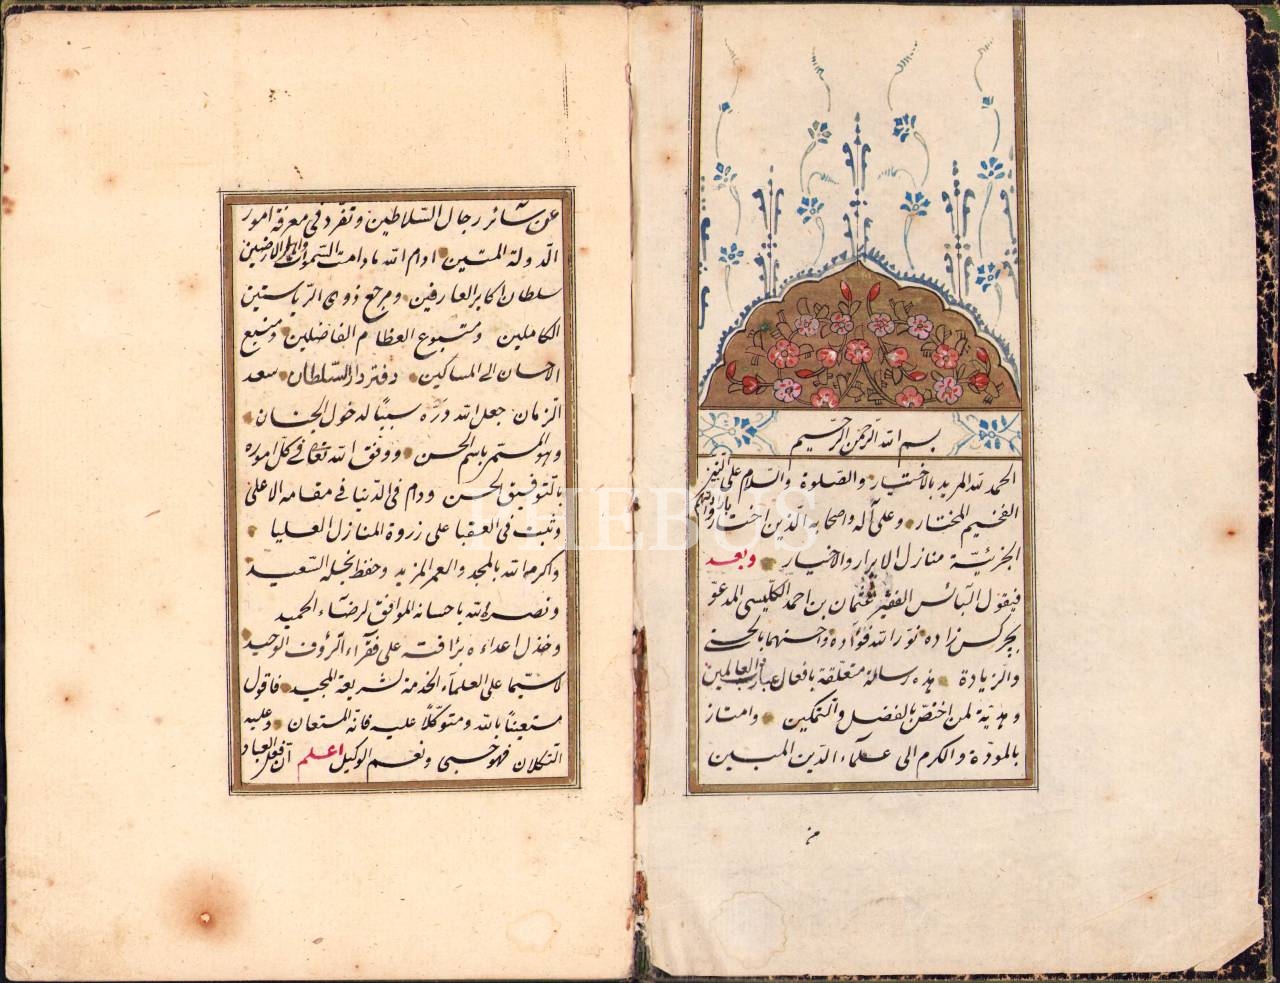 بسم الله الرحمن الرحيم
الحمد لله المريد بالاختيار والصلوة والسلام على النبي
الفخيم المختار وعلى آله واصحابه الذين اختاروا بارادتهم
الجزئية منازل الابرار والاخيار وبعد
فيقول البائس الفقير عثمان بن احمد الكليسى المدعو
بچركس زاده نور الله فؤاده واحسنهما بالحسنى
والزيادة هذه رسالة متعلقة بافعال عباد رب العالمين
وهدية لمن اختص بالفضل والتمكين وامتاز
بالمودة والكرم الى علماء الدين المبين
عن سائر رجال السلاطين وتفرد فى معرفة امور
الدولة المتين ادام الله مادامت السموات والارضين
سلطان اكابر العارفين ومرجع ذوى الرياستين
الكاملين ومتبوع العظام الفاضلين ومنبع
الاحسان الى المساكين دفتردار السلطان سعد
الزمان جعل الله دره سببا لدخول الجنان
وهو المستمى باسم الحسن ووفق الله تعالى فى كل اموره
بالتوفيق الحسن ودام فى الدنيا فى مقامه الاعلى
وثبت فى العقبا على زروة المنازل العليا
واكرمه الله بالمجد والعمر المزيد وحفظ نجله السعيد
ونصره الله باحسانه الموافق لرضاء الحميد
وخذل اعداءه برافته على فقراء الرؤف الوحيد
لاسيما على العلماء الخدمة لشريعة المجيد فاقول
مستعينا بالله ومتوكلا عليه فانه المستعان وعليه
التكلان فهو حسبى ونعم الوكيل اعلم ان فعل العباد
PHEBUS